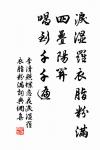 淚濕羅衣脂粉滿
四疊陽關
唱到千千遍
李清照蝶戀花淚濕羅
衣脂粉滿詞典網集